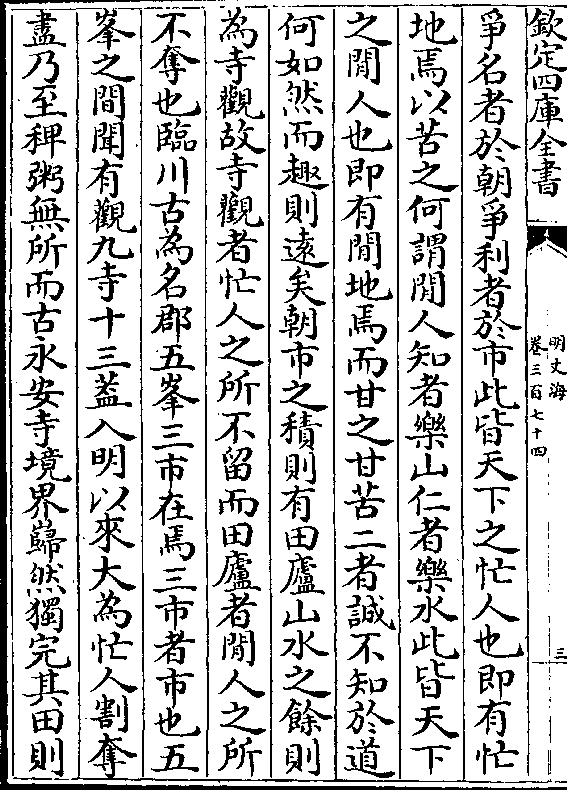 欽定四庫全書
明文海
卷三百七十四
三
爭名者於朝爭利者於市此皆天下之忙人也即有忙
地焉以苦之何謂閒人知者樂山仁者樂水此皆天下
之閒人也即有閒地焉而甘之甘苦二者誠不知於道
何如然而趣則遠矣朝市之積則有田廬山水之餘則
為寺觀故寺觀者忙人之所不留而田廬者閒人之所
不奪也臨川古為名郡五峯三市在焉三市者市也五
峯之間聞有觀九寺十三葢入明以來大為忙人割奪
盡乃至稗粥無所而古永安寺境界巋然獨完其田則